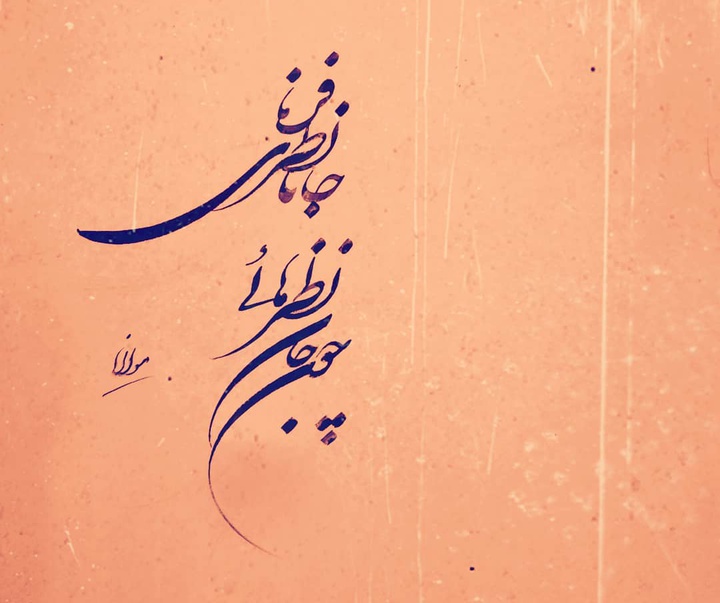 جانا نظری فرما
چون جان نظرهائی
مولانا